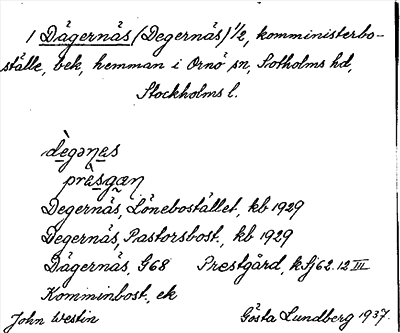 1 Dägernäs (Degernäs) 1/2, komministerbo-
ställe, bek, hemman i Ornö sn, Sotholms hd,
Stockholms l.
dègənạs
prä̀sgæṇ
Degernäs, Lönebostället, kb 1929
Degernäs, Pastorsbost., kb 1929
Dägernäs, G68 Prestgård, kfj 62.12 III
Komminbost, ek
John Westin Gösta Lundberg 1937.